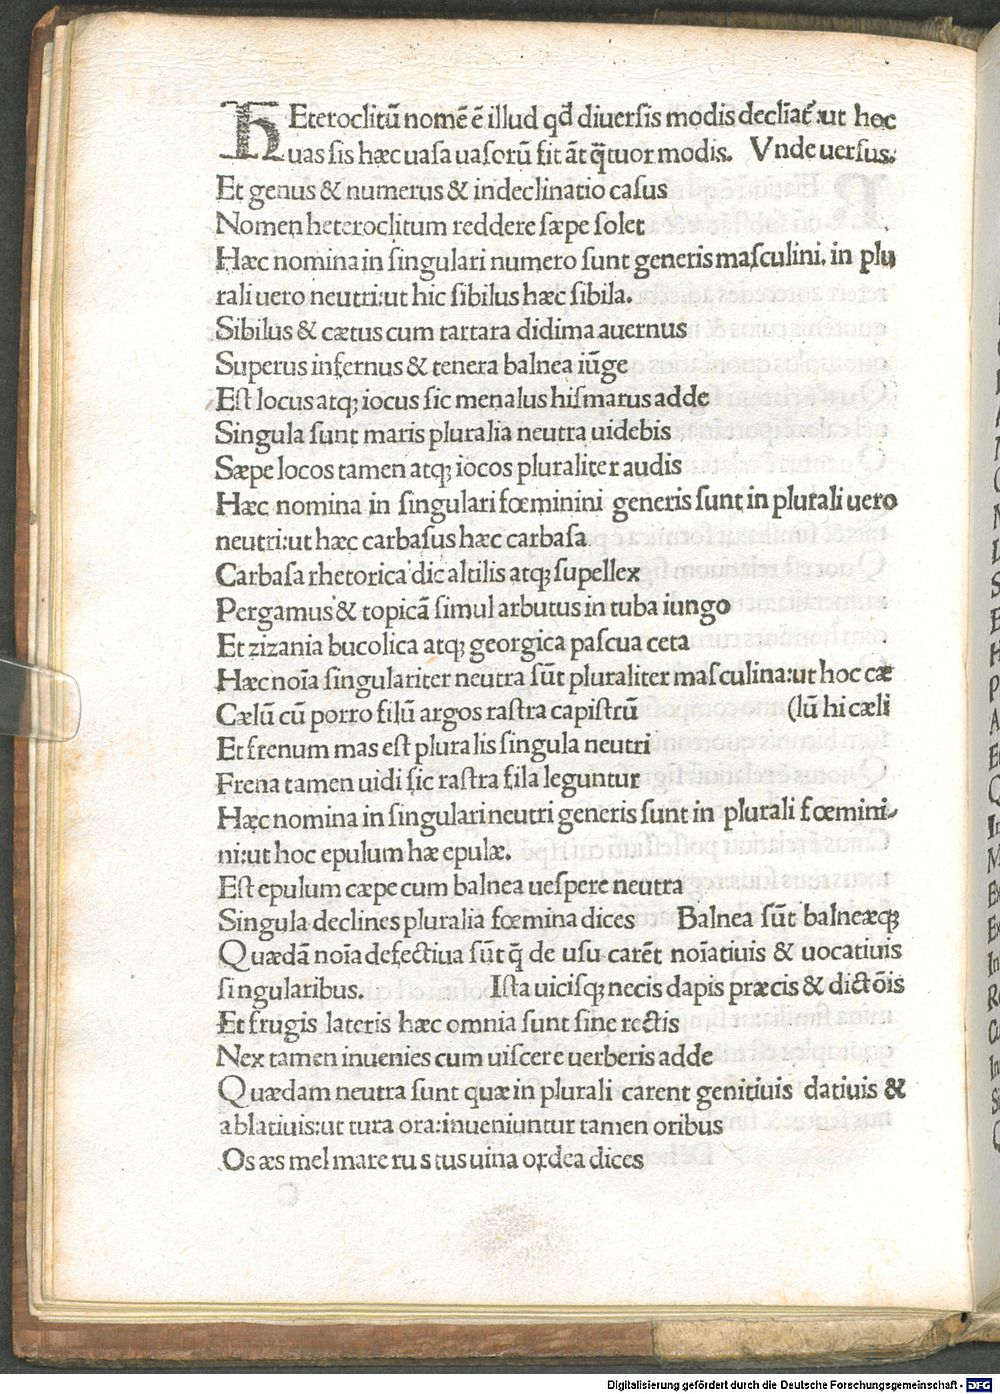 HEteroclitū nomē ē illud qđ diuersis modis decliāt᷑:ut hoc
uas sis hæc uasa uasorū fit āt q̄tuor modis. Vnde uersus:
Et genus & numerus & indeclinatio casus
Nomen heteroclitum reddere sæpe solet
Hæc nomina in singulari numero sunt generis masculini. in plu
rali uero neutri:ut hic sibilus hæc sibila.
Sibilus & cætus cum tartara didima auernus
Superus infernus & tenera balnea iūge
Est locus atq; iocus sic menalus hismarus adde
Singula sunt maris pluralia neutra uidebis
Sæpe locos tamen atq; iocos pluraliter audis
Hæc nomina in singulari fœminini generis sunt in plurali uero
neutri:ut hæc carbasus hæc carbasa
Carbasa rhetorica dic altilis atq; supellex
Pergamus & topicā simul arbutus in tuba iungo
Et zizania bucolica atq; georgica pascua ceta
Hæc noīa singulariter neutra sūt pluraliter masculina:ut hoc cæ
Cælū cū porro filū argos rastra capistrū (lū hi cæli
Et frenum mas est pluralis singula neutri
Frena tamen uidi sic rastra fila leguntur
Hæc nomina in singulari neutri generis sunt in plurali fœmini-
ni:ut hoc epulum hæ epulæ.
Est epulum cæpe cum balnea uespere neutra
Singula declines pluralia fœmina dices Balnea sūt balneæq;
Quædā noīa defectiua sūt q̄ de usu carēt noīatiuis & uocatiuis
singularibus. Ista uicisq; necis dapis præcis & dictōis
Et frugis lateris hæc omnia sunt sine rectis
Nex tamen inuenies cum uiscere uerberis adde
Quædam neutra sunt quæ in plurali carent genitiuis datiuis &
ablatiuis:ut tura ora:inueniuntur tamen oribus
Os æs mel mare rus tus uina ordea dices
Digitalisierung gefördert durch die Deutsche Forschungsgemeinschaft - DFG